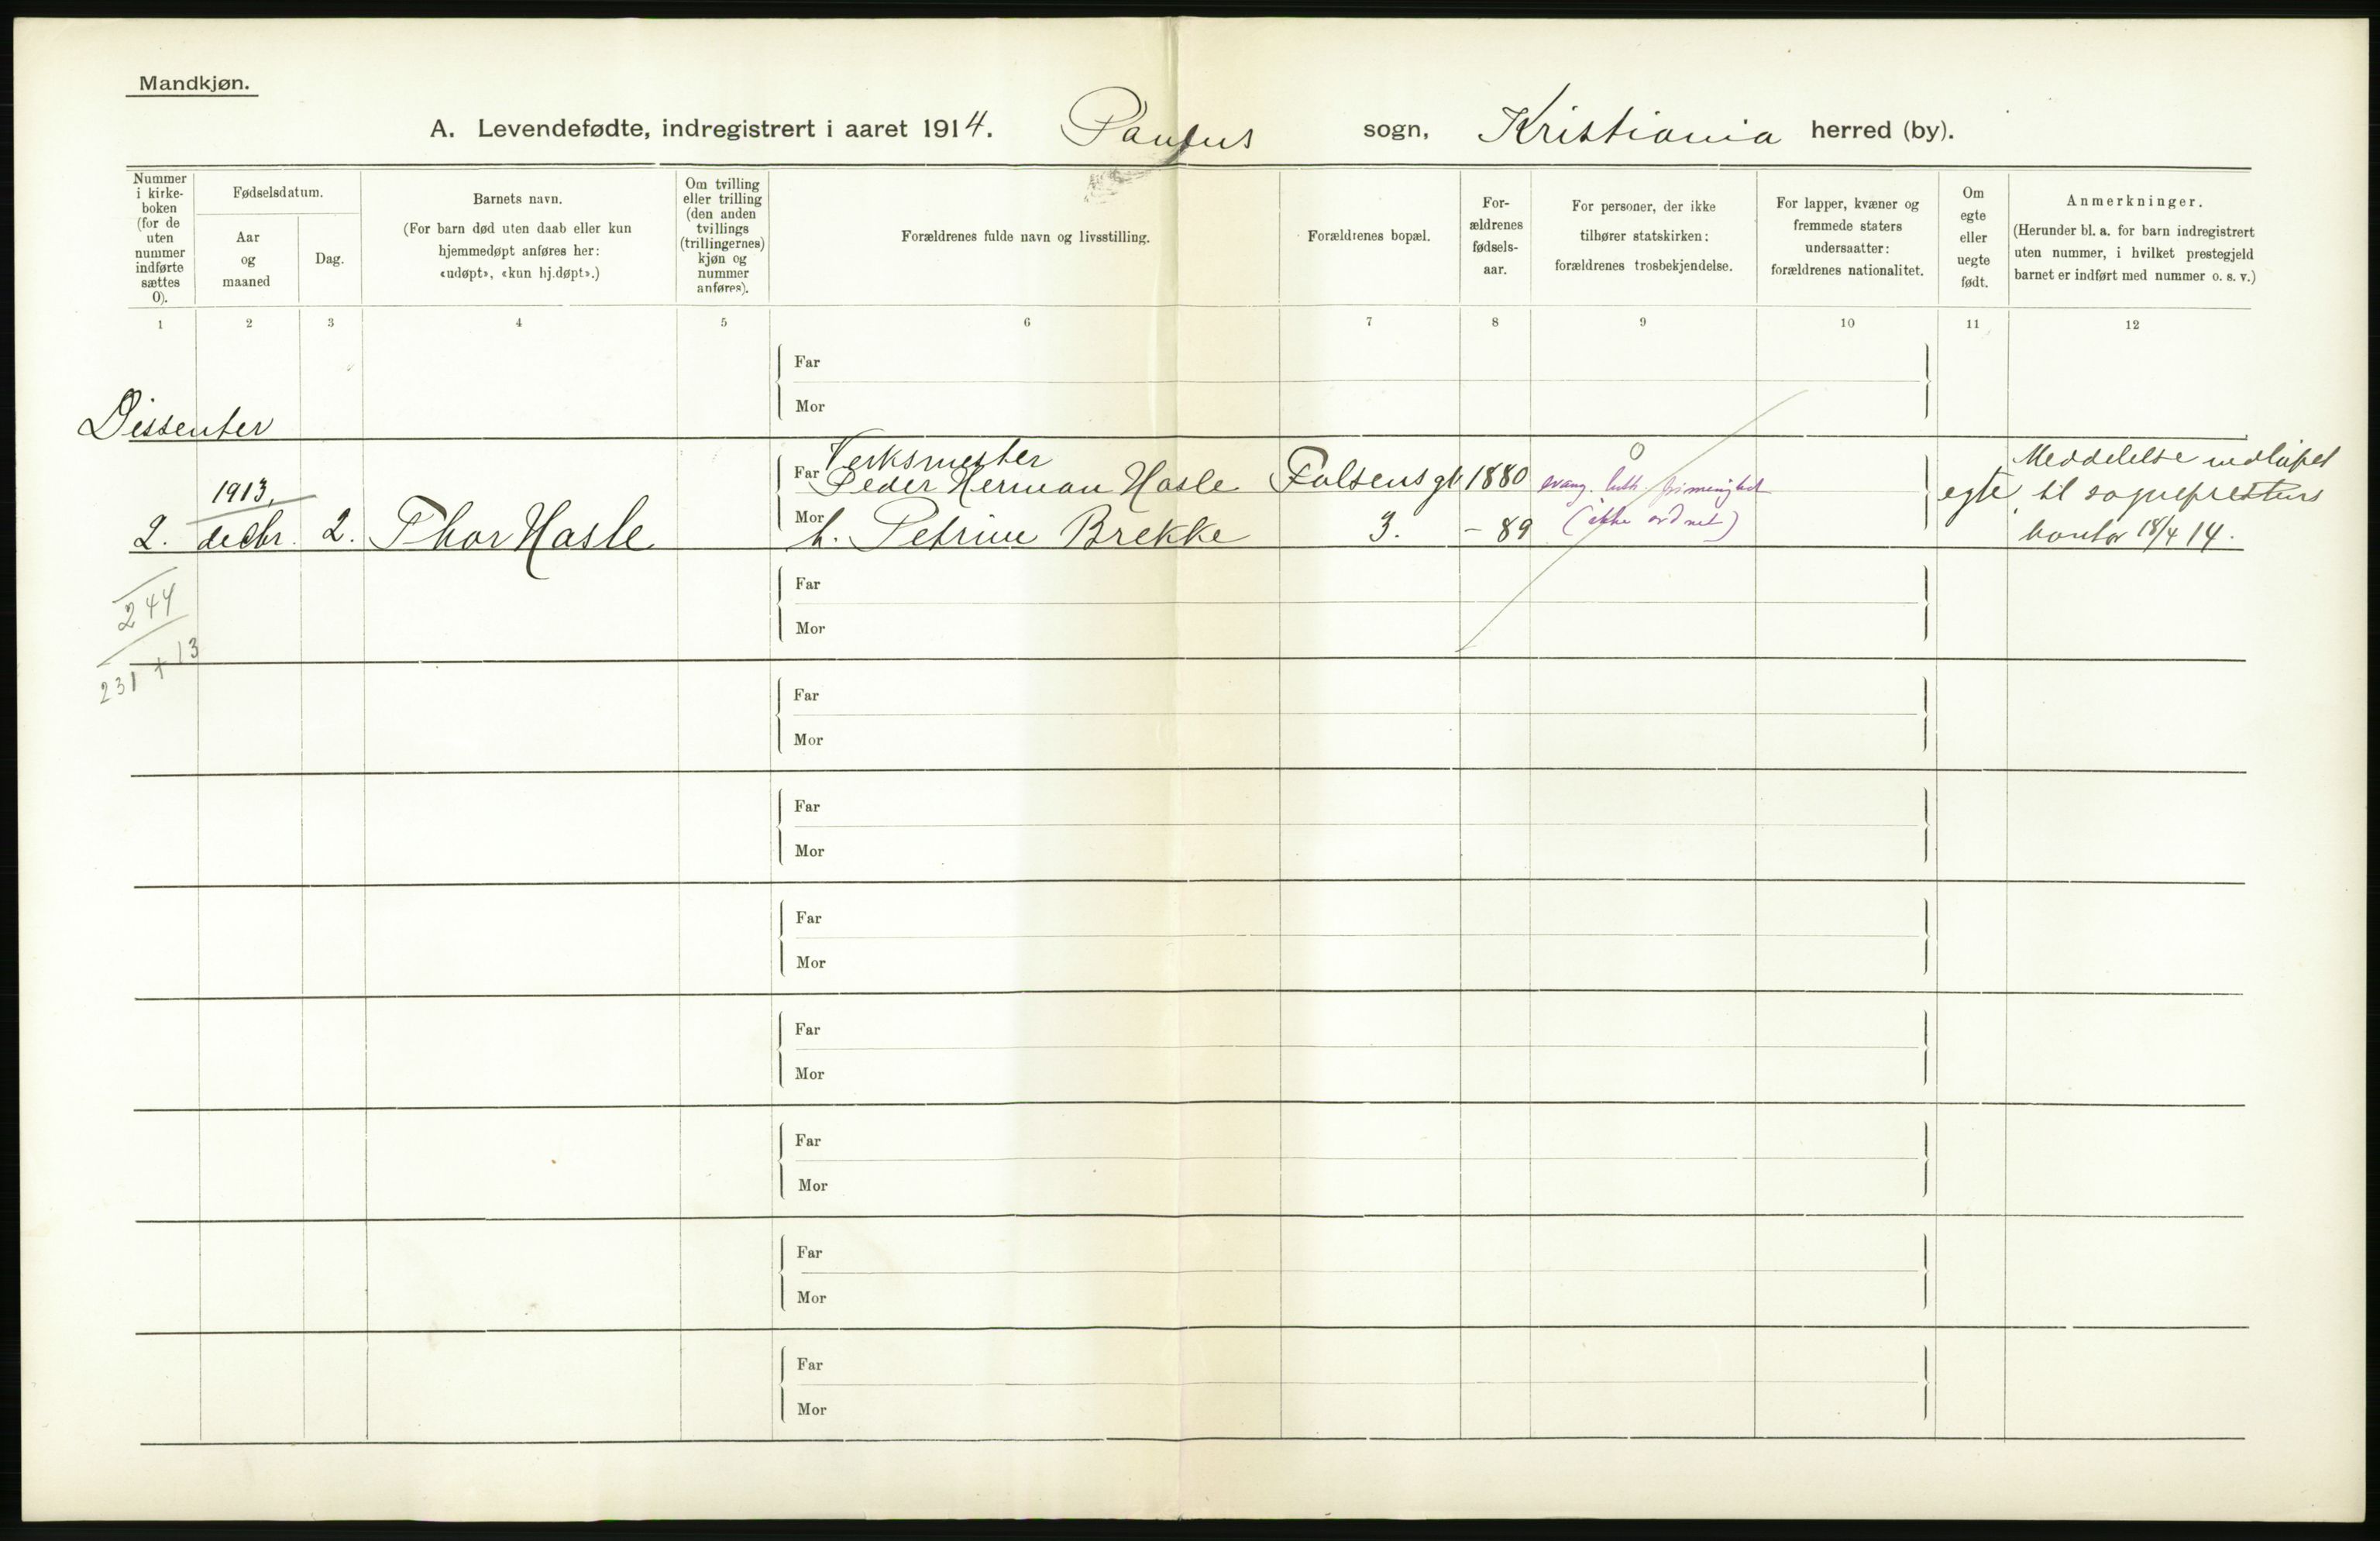 Mandkjøn.
A. Levendefødte, indregistrert i aaret 1914. Paulus sogn, Kristiania herred (by).
Nummer
i kirke-
boken
(for de
uten
nummer
indførte
sættes
0).
Fødselsdatum.
Aar
og
maaned
Dag.
Barnets navn.
(For barn død uten daab eller kun
hjemmedøpt anføres her:
«udøpt», «kun hj.døpt».)
Om tvilling
eller trilling
(den anden
tvillings
(trillingernes)
kjøn og
nummer
anføres).
Forældrenes fulde navn og livsstilling.
Forældrenes bopæl.
For-
ældrenes
fødsels-
aar.
For personer, der ikke
tilhører statskirken:
forældrenes trosbekjendelse.
For lapper, kvæner og
fremmede staters
undersaatter:
forældrenes nationalitet.
Om
egte
eller
uegte
født.
Anmerkninger.
(Herunder bl. a. for barn indregistrert
uten nummer, i hvilket prestegjeld
barnet er indført med nummer o. s. v.)
1 2 3 4 5 6 7 8 9 10 11 12
Far
Mor
Dissenter
Verksmester
Far Peder Herman Hasle Falsensgt. 1880 evang. luth. frimenighet
Mor h. Petrine Brekke 3. - 89 (ikke ordnet)
1913.
2. decbr. 2. Thor Hasle
0
egte
Meddelelse indløpet
til sogneprestens
kontor 18/4 14.
244
231 + 13
Far
Mor
Far
Mor
Far
Mor
Far
Mor
Far
Mor
Far
Mor
Far
Mor
Far
Mor